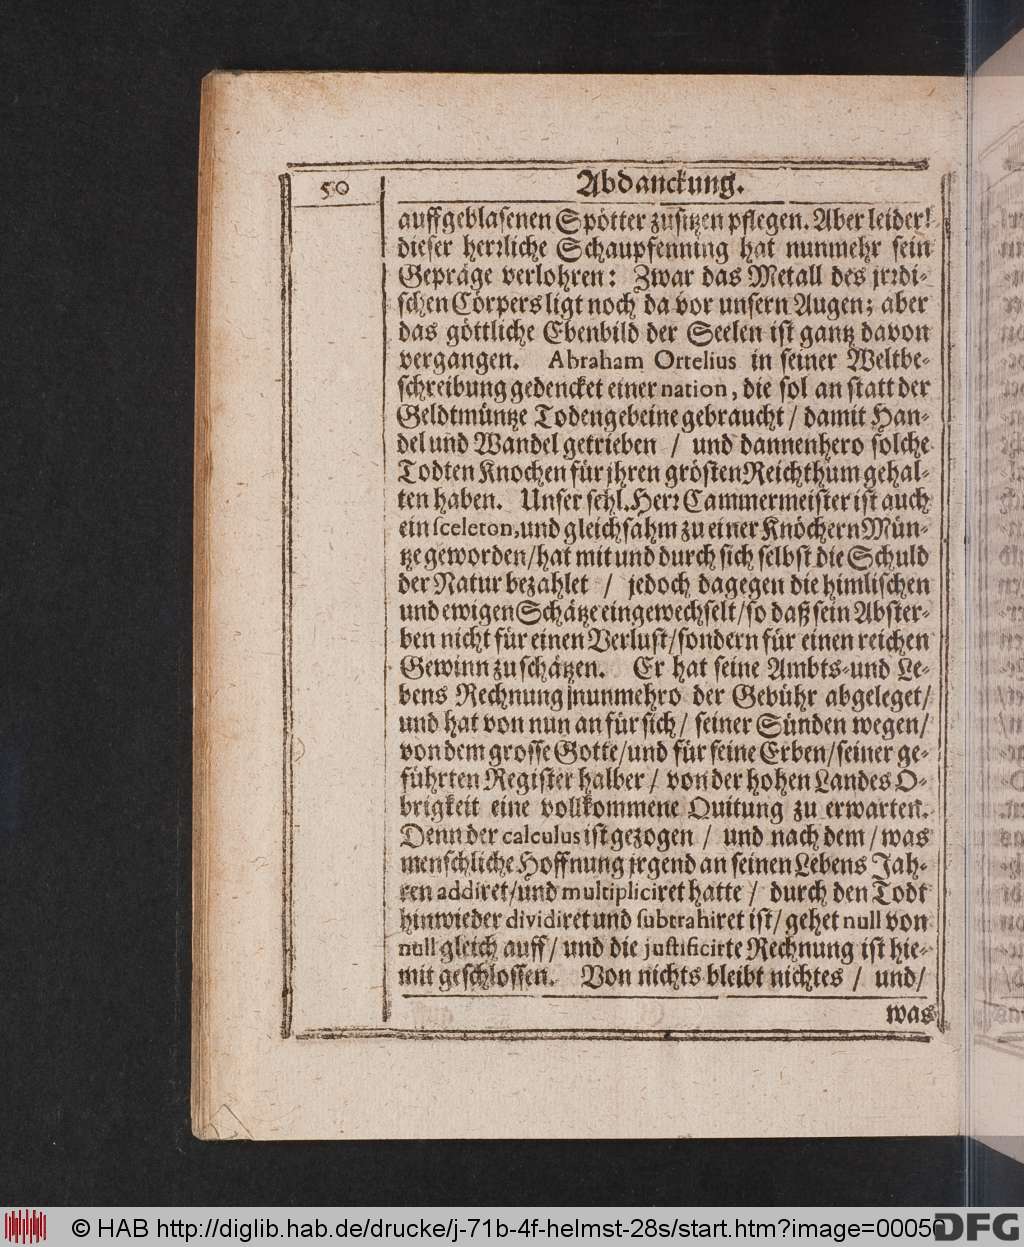 50
Abdanckung.
auffgeblasenen Spötter zusitzen pflegen. Aber leider!
dieser herrliche Schaupfenning hat nunmehr sein
Gepräge verlohren: Zwar das Metall des jrrdi-
schen Cörpers ligt noch da vor unsern Augen; aber
das göttliche Ebenbild der Seelen ist gantz davon
vergangen. Abraham Ortelius in seiner Weltbe-
schreibung gedencket einer nation, die sol an statt der
Geldtmüntze Todengebeine gebraucht / damit Han-
del und Wandel getrieben / und dannenhero solche
Todten Knochen für jhren grösten Reichthum gehal-
ten haben. Unser sehl. Herr Cammermeister ist auch
ein sceleton, und gleichsahm zu einer Knöchern Mün-
tze geworden/ hat mit und durch sich selbst die Schuld
der Natur bezahlet / jedoch dagegen die himlischen
und ewigen Schätze eingewechselt/ so daß sein Abster-
ben nicht für einen Verlust/ sondern für einen reichen
Gewinn zu schätzen. Er hat seine Ambts-und Le-
bens Rechnung jnunmehro der Gebühr abgeleget/
und hat von nun an für sich / seiner Sünden wegen/
von dem grosse Gotte/ und für seine Erben/ seiner ge-
führten Register halber / von der hohen Landes O-
brigkeit eine vollkommene Quitung zu erwarten.
Denn der calculus ist gezogen / und nach dem / was
menschliche Hoffnung jrgend an seinen Lebens Jah-
ren addiret/ und multipliciret hatte / durch den Todt
hinwieder dividiret und subtrahiret ist/ gehet null von
null gleich auff/ und die justificirte Rechnung ist hie-
mit geschlossen. Von nichts bleibt nichtes / und/
was
© HAB http://diglib.hab.de/drucke/j-71b-4f-helmst-28s/start.htm?image=00050
DFG